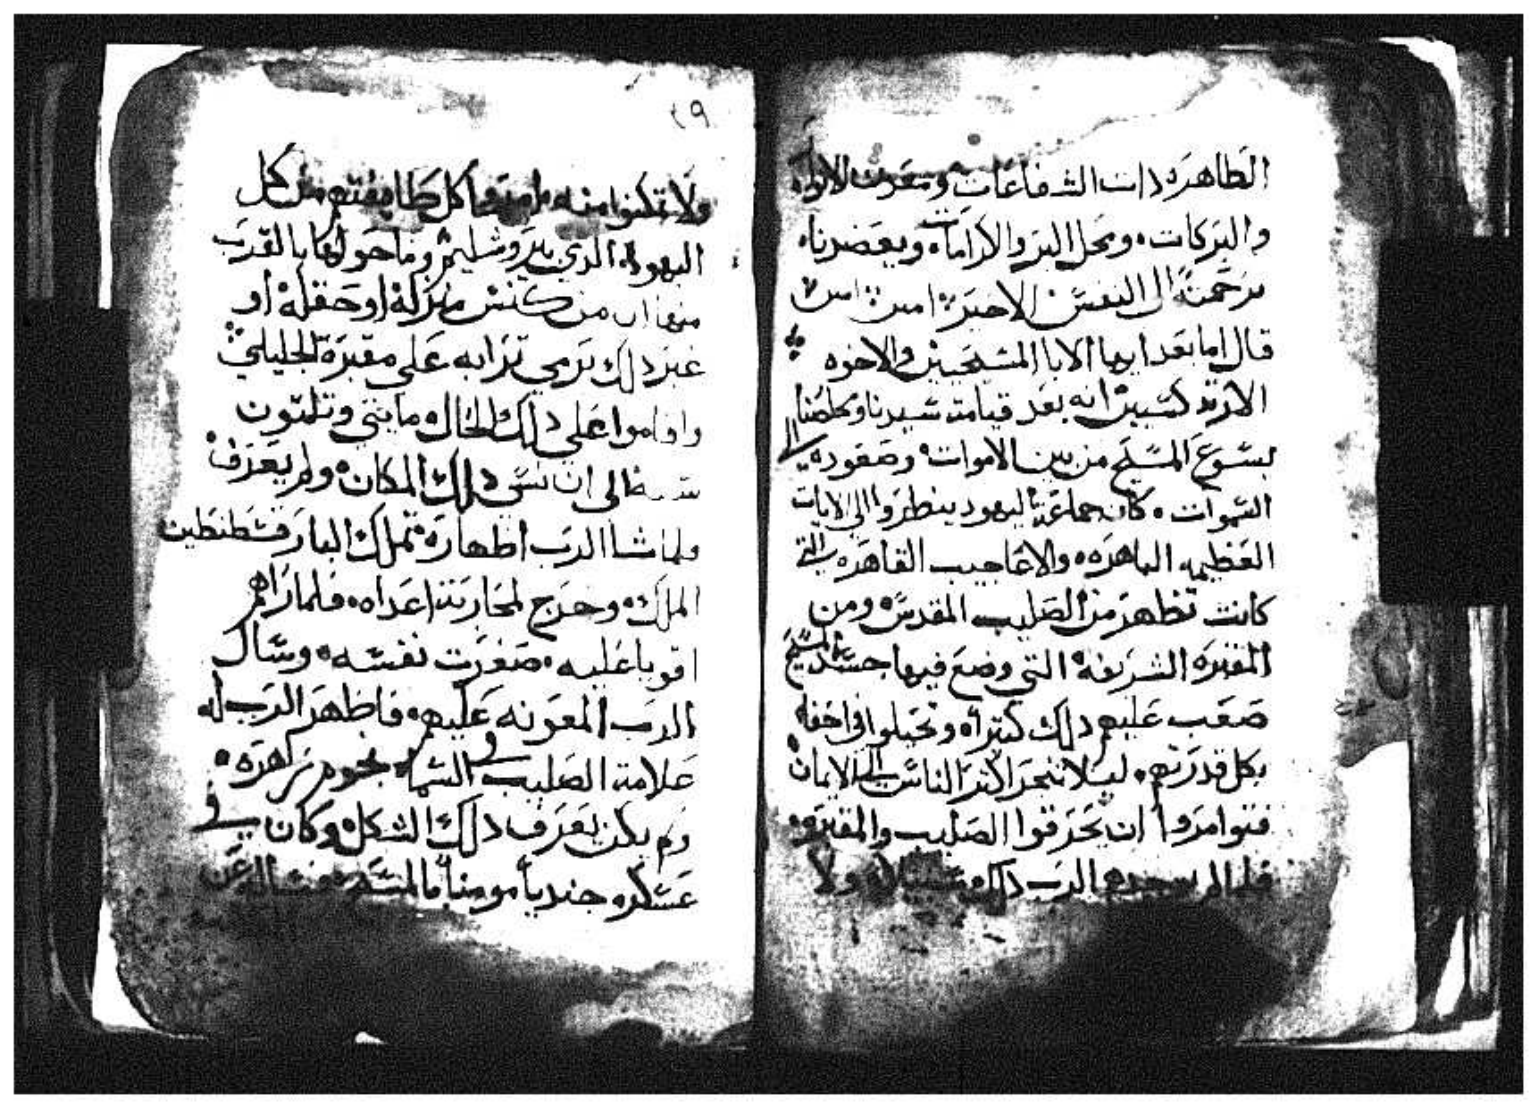 الطاهره دات الشفاعات ومعدن الا
والبركات ومحل البر والاراماة ويعضرنا
برحمته الى النفس الاخيرة امين امين
قال اما بعد ايها الابا المسيحيين والاخوه
الارتدكسيين انه بعد قيامة سيدنا ومخلصنا
يسوع المسيح من بين الاموات وصعوده الى
السموات كان جماعة اليهود ينظروا الى الايات
العظيمه الباهره والاعاجيب القاهره التى
كانت تظهر من الصليب المقدس ومن
المقبره الشريفة التي وضع فيها جسد المسيح
صعب عليهم دلك كتيرا وتحيلوا في اخفا
بكل قدرتهم ليلا تنجر اكتر الناس الى الايمان
فتوامروا ان يحرقوا الصليب والمقبره
فلما لم الرب دلك ولا
٢٩
ولا تمكنوا منه امروا كل طايفتهم من كل
اليهود الدي بيروشليم وما حولها بالقرب
منها ان من كنس منزله او حقله او
غير دلك يرمي ترابه على مقبرة الجليلي
واقاموا على دلك الحال مايتي وتلتون
سنة الى ان نسي دلك المكان ولم يعرف
ولما شا الرب اظهاره تملك البار قسطنطين
الملك وخرج لمحاربة اعداه فلما راهم
اقويا عليه صغرت نفسه وسال
الرب المعونه عليهم فاظهر الرب له
علامة الصليب في السما بنجوم زاهره
ولم يكن يعرف دلك الشكل وكان في
عسكره جنديا مومنا بالمسيح فساله عن